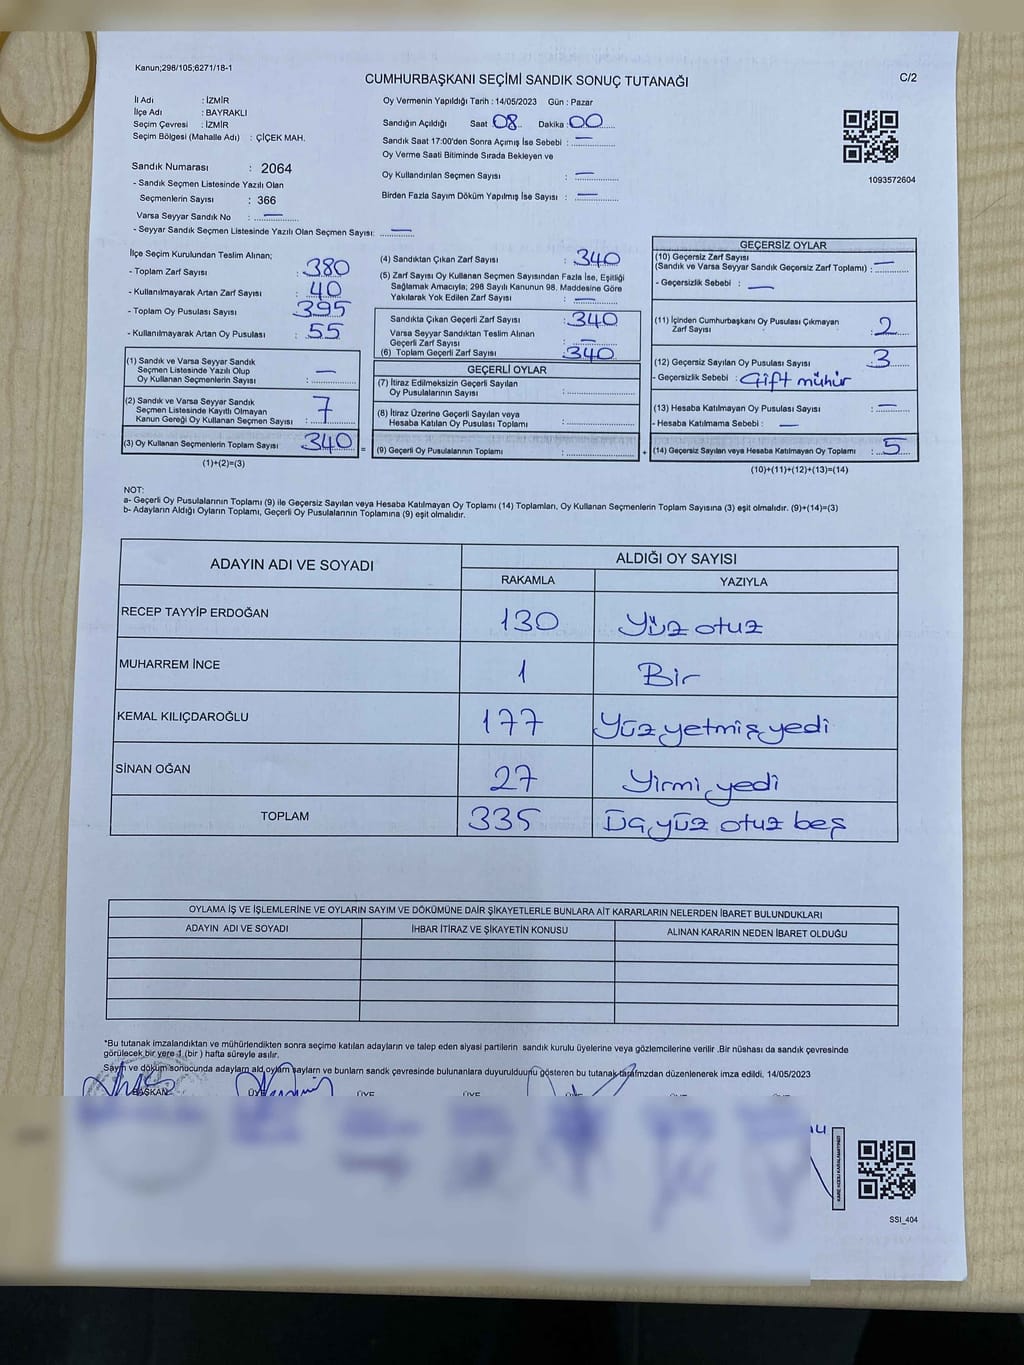 Kanun;298/105;6271/18-1
CUMHURBAŞKANI SEÇİMİ SANDIK SONUÇ TUTANAĞI
C/2
İl Adı : İZMİR
İlçe Adı : BAYRAKLI
Seçim Çevresi : İZMİR
Seçim Bölgesi (Mahalle Adı) : ÇİÇEK MAH.
Sandık Numarası : 2064
- Sandık Seçmen Listesinde Yazılı Olan
Seçmenlerin Sayısı : 366
Varsa Seyyar Sandık No : —
- Seyyar Sandık Seçmen Listesinde Yazılı Olan Seçmen Sayısı: —
Oy Vermenin Yapıldığı Tarih : 14/05/2023 Gün : Pazar
Sandığın Açıldığı Saat 08 Dakika : 00
Sandık Saat 17:00'den Sonra Açımış İse Sebebi : —
Oy Verme Saati Bitiminde Sırada Bekleyen ve
Oy Kullandırılan Seçmen Sayısı : —
Birden Fazla Sayım Döküm Yapılmış İse Sayısı : —
1093572604
İlçe Seçim Kurulundan Teslim Alınan;
- Toplam Zarf Sayısı : 380
- Kullanılmayarak Artan Zarf Sayısı : 40
- Toplam Oy Pusulası Sayısı : 395
- Kullanılmayarak Artan Oy Pusulası : 55
(1) Sandık ve Varsa Seyyar Sandık
Seçmen Listesinde Yazılı Olup
Oy Kullanan Seçmenlerin Sayısı : —
(2) Sandık ve Varsa Seyyar Sandık
Seçmen Listesinde Kayıtlı Olmayan
Kanun Gereği Oy Kullanan Seçmen Sayısı : 7
(3) Oy Kullanan Seçmenlerin Toplam Sayısı : 340
(1)+(2)=(3)
(4) Sandıktan Çıkan Zarf Sayısı : 340
(5) Zarf Sayısı Oy Kullanan Seçmen Sayısından Fazla İse, Eşitliği
Sağlamak Amacıyla; 298 Sayılı Kanunun 98. Maddesine Göre
Yakılarak Yok Edilen Zarf Sayısı : —
Sandıkta Çıkan Geçerli Zarf Sayısı : 340
Varsa Seyyar Sandıktan Teslim Alınan
Geçerli Zarf Sayısı : —
(6) Toplam Geçerli Zarf Sayısı : 340
GEÇERLİ OYLAR
(7) İtiraz Edilmeksizin Geçerli Sayılan
Oy Pusulalarının Sayısı :
(8) İtiraz Üzerine Geçerli Sayılan veya
Hesaba Katılan Oy Pusulası Toplamı :
= (9) Geçerli Oy Pusulalarının Toplamı : +
GEÇERSİZ OYLAR
(10) Geçersiz Zarf Sayısı
(Sandık ve Varsa Seyyar Sandık Geçersiz Zarf Toplamı) : —
- Geçersizlik Sebebi : —
(11) İçinden Cumhurbaşkanı Oy Pusulası Çıkmayan
Zarf Sayısı : 2
(12) Geçersiz Sayılan Oy Pusulası Sayısı : 3
- Geçersizlik Sebebi : Çift mühür
(13) Hesaba Katılmayan Oy Pusulası Sayısı : —
- Hesaba Katılmama Sebebi : —
(14) Geçersiz Sayılan veya Hesaba Katılmayan Oy Toplamı : 5
(10)+(11)+(12)+(13)=(14)
NOT:
a- Geçerli Oy Pusulalarının Toplamı (9) ile Geçersiz Sayılan veya Hesaba Katılmayan Oy Toplamı (14) Toplamları, Oy Kullanan Seçmenlerin Toplam Sayısına (3) eşit olmalıdır. (9)+(14)=(3)
b- Adayların Aldığı Oyların Toplamı, Geçerli Oy Pusulalarının Toplamına (9) eşit olmalıdır.
ADAYIN ADI VE SOYADI
ALDIĞI OY SAYISI
RAKAMLA YAZIYLA
RECEP TAYYİP ERDOĞAN 130 Yüz otuz
MUHARREM İNCE 1 Bir
KEMAL KILIÇDAROĞLU 177 Yüz yetmiş yedi
SİNAN OĞAN 27 Yirmi yedi
TOPLAM 335 Üç yüz otuz beş
OYLAMA İŞ VE İŞLEMLERİNE VE OYLARIN SAYIM VE DÖKÜMÜNE DAİR ŞİKAYETLERLE BUNLARA AİT KARARLARIN NELERDEN İBARET BULUNDUKLARI
ADAYIN ADI VE SOYADI İHBAR İTİRAZ VE ŞİKAYETİN KONUSU ALINAN KARARIN NEDEN İBARET OLDUĞU
*Bu tutanak imzalandıktan ve mühürlendikten sonra seçime katılan adayların ve talep eden siyasi partilerin sandık kurulu üyelerine veya gözlemcilerine verilir .Bir nüshası da sandık çevresinde
görülecek bir yere 1 (bir ) hafta süreyle asılır.
Sayım ve döküm sonucunda adayların ald oyların sayların ve bunların sandk çevresinde bulunanlara duyurulduunu gösteren bu tutanak tarafmzdan düzenlenerek imza edildi. 14/05/2023
BAŞKAN ÜYE ÜYE ÜYE ÜYE
SSI_404